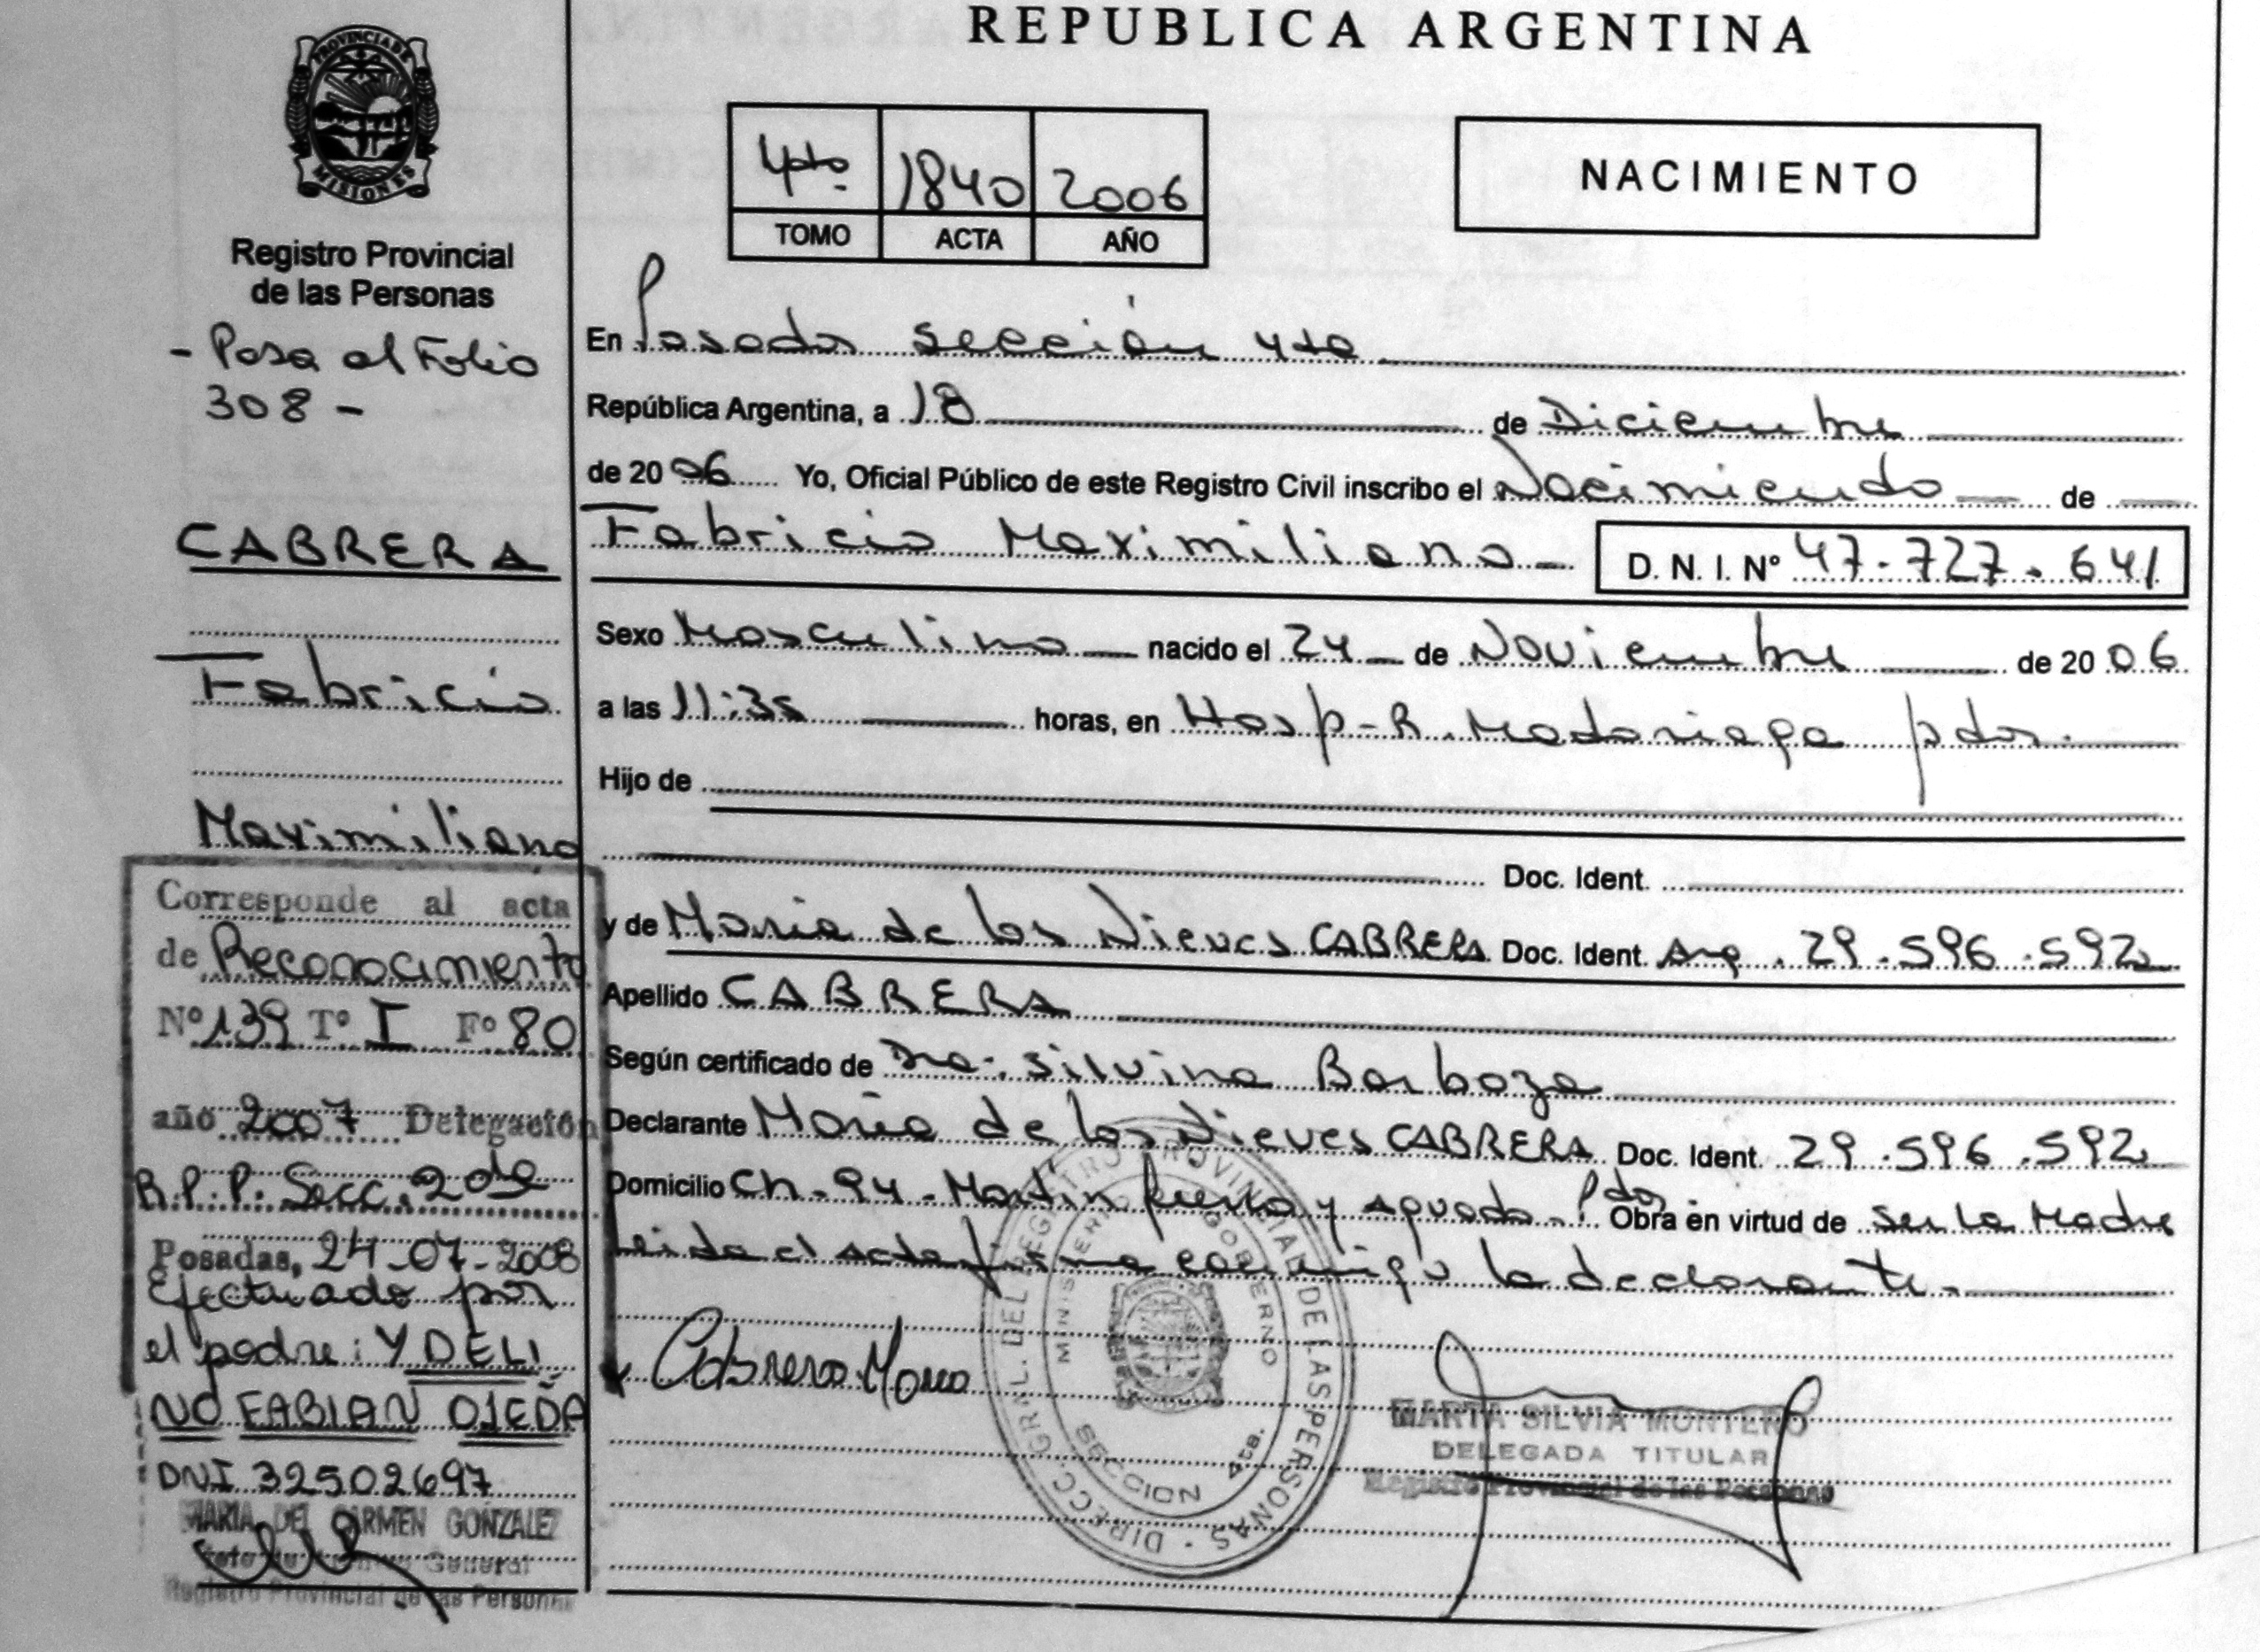 REPUBLICA ARGENTINA
PROVINCIA DE
MISIONES
Registro Provincial
de las Personas
- Pasa al Folio
308 -
CABRERA
Fabricio
Maximiliano
Corresponde al acta
de Reconocimiento
Nº 139 Tº I Fº 80
año 2007 Delegación
R.P.P. Secc. 2da
Posadas, 24-07-2008
Efectuado por
el padre: YDELI
NO FABIAN OJEDA
DNI 32502697
MARIA DEL CARMEN GONZALEZ
General
Registro Provincial de las Personas
4to. 1840 2006
TOMO ACTA AÑO
NACIMIENTO
En Posadas sección 4ta
República Argentina, a 18 de Diciembre
de 2006 Yo, Oficial Público de este Registro Civil inscribo el Nacimiento de
Fabricio Maximiliano D. N. I. Nº 47.727.641
Sexo Masculino nacido el 24 de Noviembre de 2006
a las 11:35 horas, en Hosp-R. Madariaga pdas.
Hijo de
Doc. Ident.
y de Maria de los Nieves CABRERA Doc. Ident. Arg. 29.596.592
Apellido CABRERA
Según certificado de Dra. Silvina Barboza
Declarante Maria de los Nieves CABRERA Doc. Ident. 29.596.592
Domicilio Ch-94-Martin y aguado - Pdas Obra en virtud de ser la Madre
Leida el acta firma conmigo la declarante.
Cabrera Maria
DIRECC. GRAL. DEL REGISTRO PROVINCIAL DE LAS PERSONAS
MINISTERIO GOBERNO
SECCION 4ta.
MARTA SILVIA MONTERO
DELEGADA TITULAR
Registro Provincial de las Personas